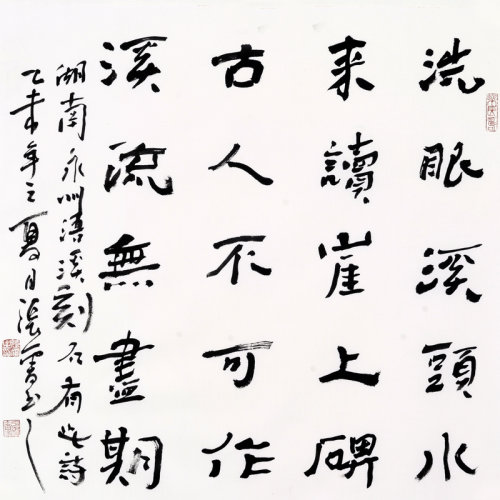 洗眼溪頭水
来讀崖上碑
古人不可作
溪流無盡期
湖南永州浯溪刻石有此詩
乙未年之夏月張雷書之